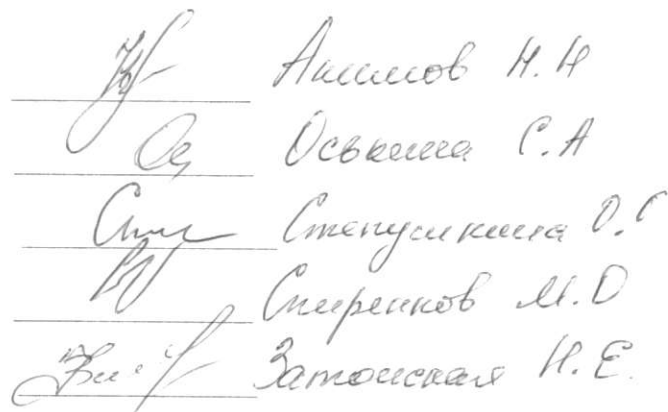 Акимов Н.Н
Оськина С.А
Степушкина О.С
Спиренков М.О
Затонская Н.Е.